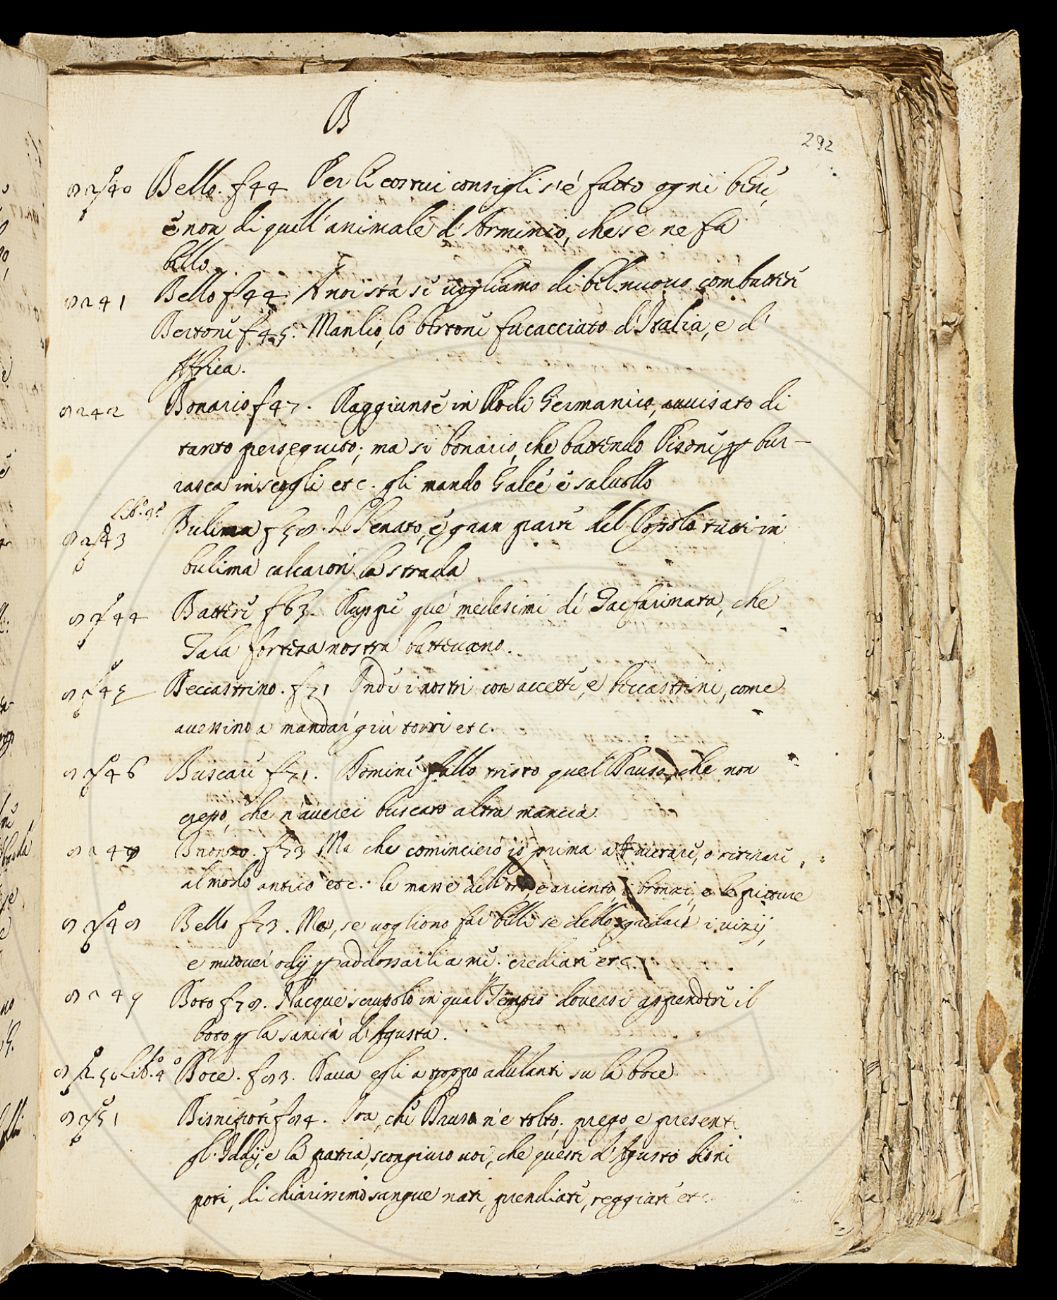 B
292
8240 Bello. f 44 Per li costui consigli s'é fatto ogni bene,
e non di quell'animale d'Arminio, che se ne fa
bello.
8241 Bello f. 44. A noi stá se vogliamo di bel nuovo combattere
Bertone f. 45. Manlio, lo bertone fu cacciato d'Italia, e d'
Affrica.
8242 Bonario f 47. Raggiunse in Rodi Germanico, avvisato di
tanto perseguito; ma sí bonario, che battendo Pisone p bur-
rasca in scogli etc. gli mandò Galée e salvollo
Lib.° 3°
8243 Bulima f 58. Il Senato, e gran parte del Popolo tutti in
bulima calcaron la strada
8244 Battere f 63. Ruppe que' medesimi di Tacfarinata, che
Tala fortezza nostra battevano.
8245 Beccastrino. f 71 Indi i nostri con accette, e beccastrini, come
avessino a mandar giú torri etc.
8246 Buscare f 71. Domine fallo tristo quel Druso, che non
crepò, che n'averei buscato altra mancia.
8247 Bronzo. f 73 Ma che comincierò io prima a , o ritirare,
al modo antico etc. le masse dell'oro e ariento i bronzi, e le pitture
8248 Bello f 73. Ma, se vogliono far belli se dello sgridare i vizij,
e muover odij p addossarli a me. crediate etc.
8249 Boto f 78. Nacque scrupolo in qual Tempio dovessi appendere il
boto p la sanità d'Agusta.
8250 Lib.° 4° Boce. f 83. Dava egli a troppo adulanti su la boce
8251 Bisnipote f 84. Ora, che Druso n'è tolto. prego e presenti
gl'Iddij, e la patria, scongiuro voi, che questi d'Agusto bisni
poti, di chiarissimo sangue nati, prendiate, reggiate etc.